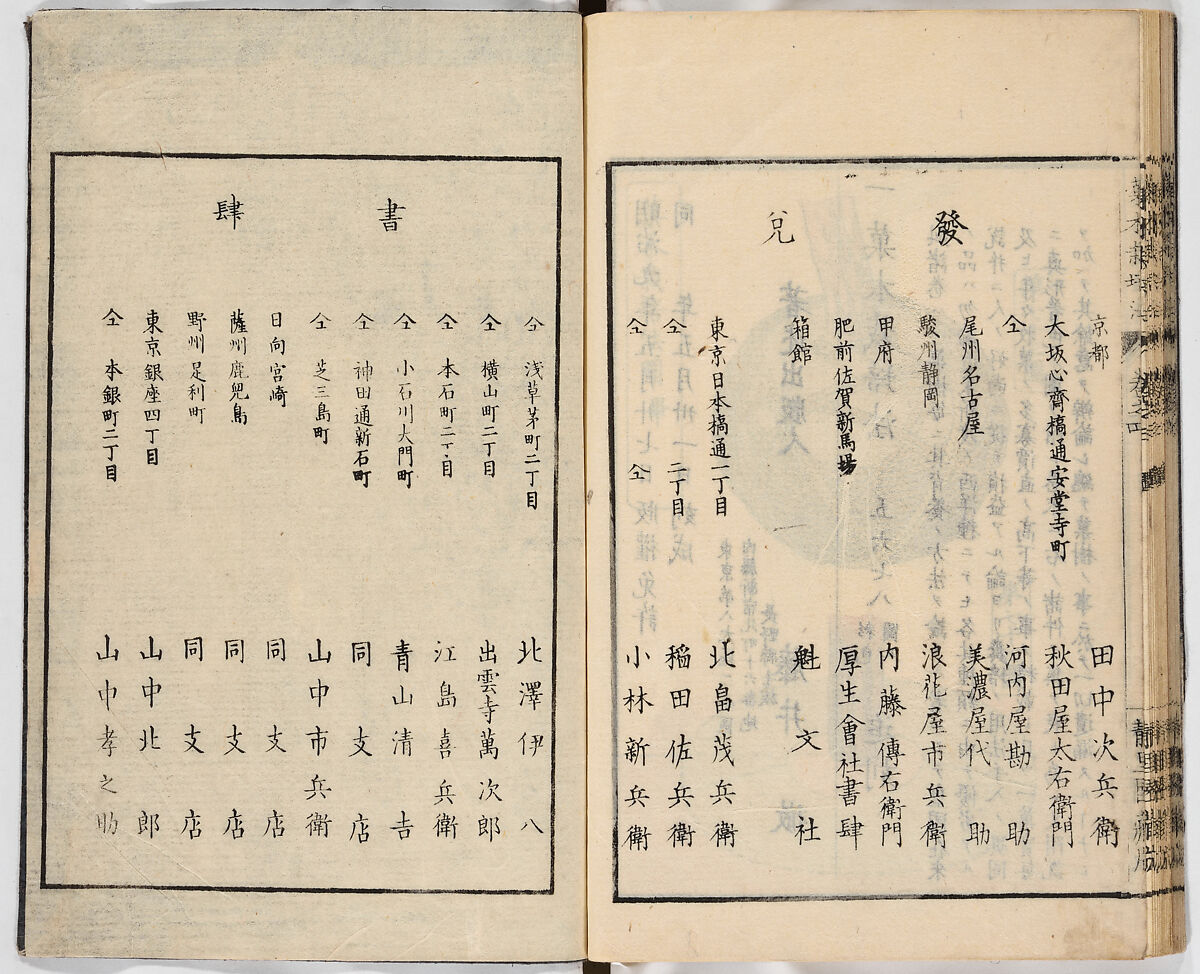 發兌
京都 田中次兵衛
大坂心齊橋通安堂寺町 秋田屋太右衛門
仝 河内屋勘助
尾州名古屋 美濃屋代助
駿州静岡 浪花屋市兵衛
甲府 内藤傳右衛門
肥前佐賀新馬場 厚生會社書肆
箱館 魁文社
東京日本橋通一丁目 北畠茂兵衛
仝 仝 二丁目 稲田佐兵衛
仝 小林新兵衛
書肆
仝 浅草茅町二丁目 北澤伊八
仝 横山町二丁目 出雲寺萬次郎
仝 本石町二丁目 江島喜兵衛
仝 小石川大門町 青山清吉
仝 神田通新石町 同支店
仝 芝三島町 山中市兵衛
日向宮崎 同支店
薩州鹿兒島 同支店
野州足利町 同支店
東京銀座四丁目 山中北郎
仝 本銀町二丁目 山中孝之助